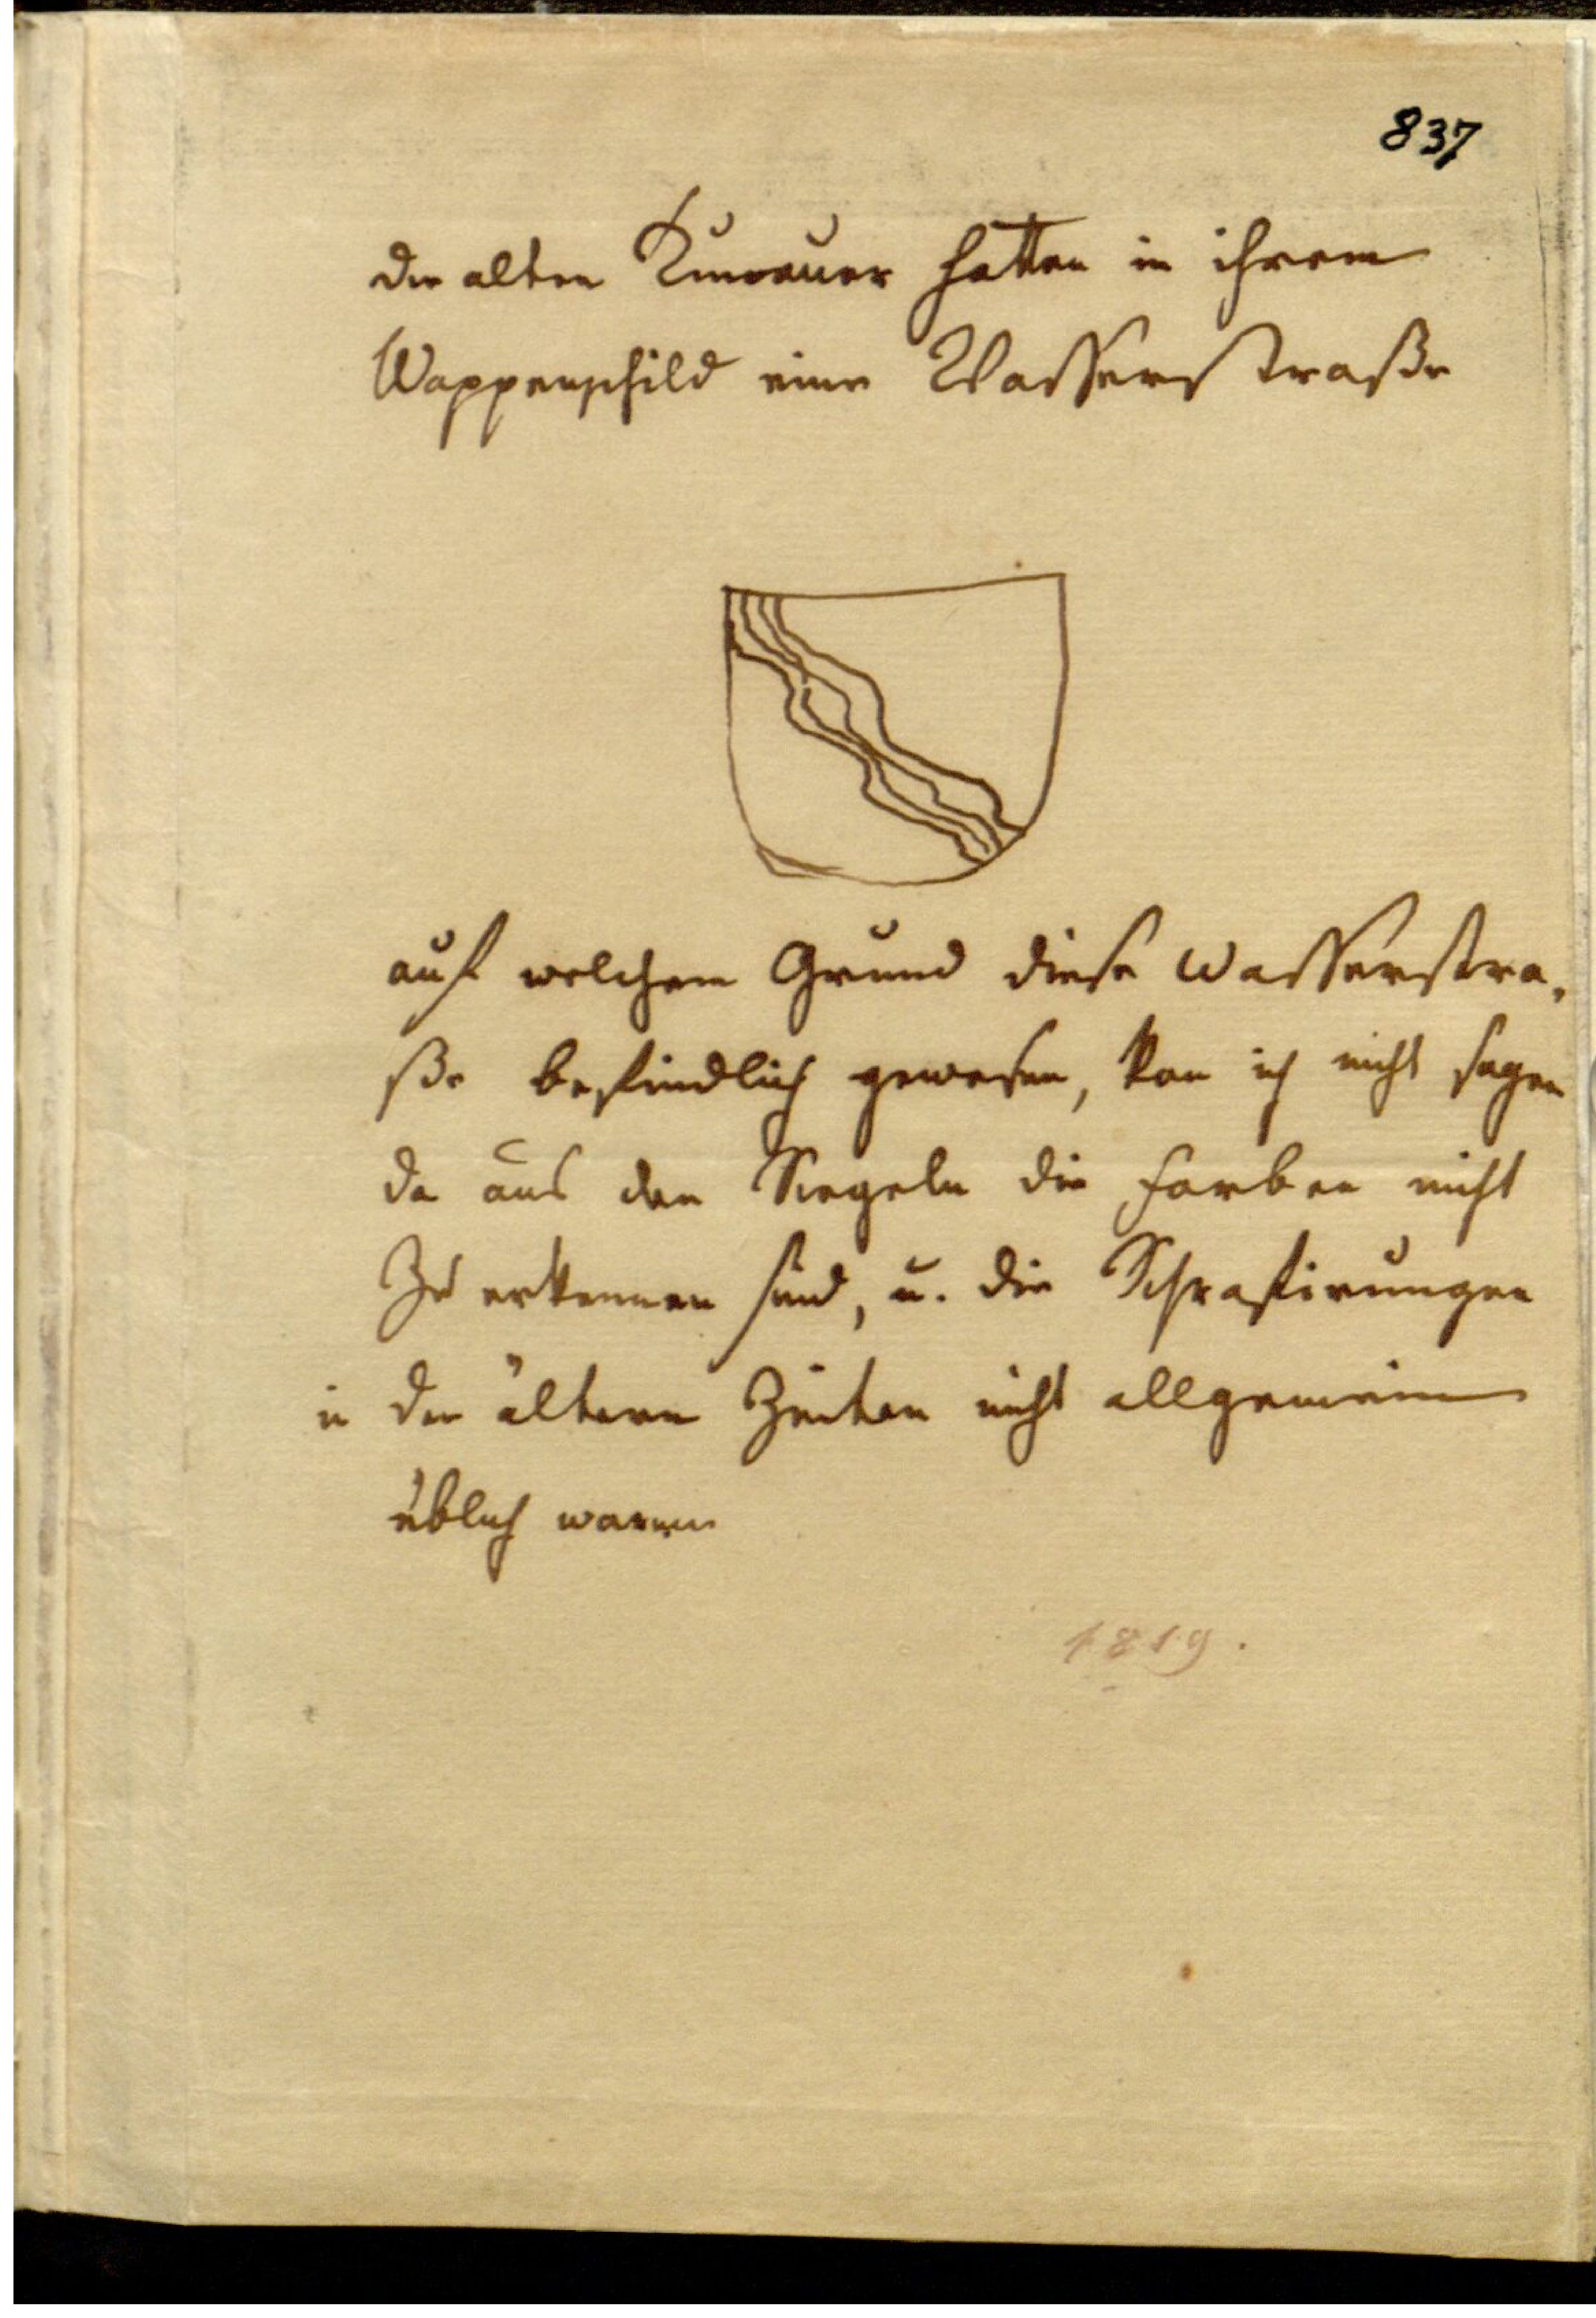 837
die alten Kunrauer hatten in ihrem
Wappenschild eine Wasserstraße
auf welchem Grund diese Wasserstra,
ße befindlich gewesen, kan ich nicht sagen
da aus den Siegeln die Farben nicht
zu erkennen sind, u. die Schrafirungen
in den ältern Zeiten nicht allgemein
üblich waren
1819.